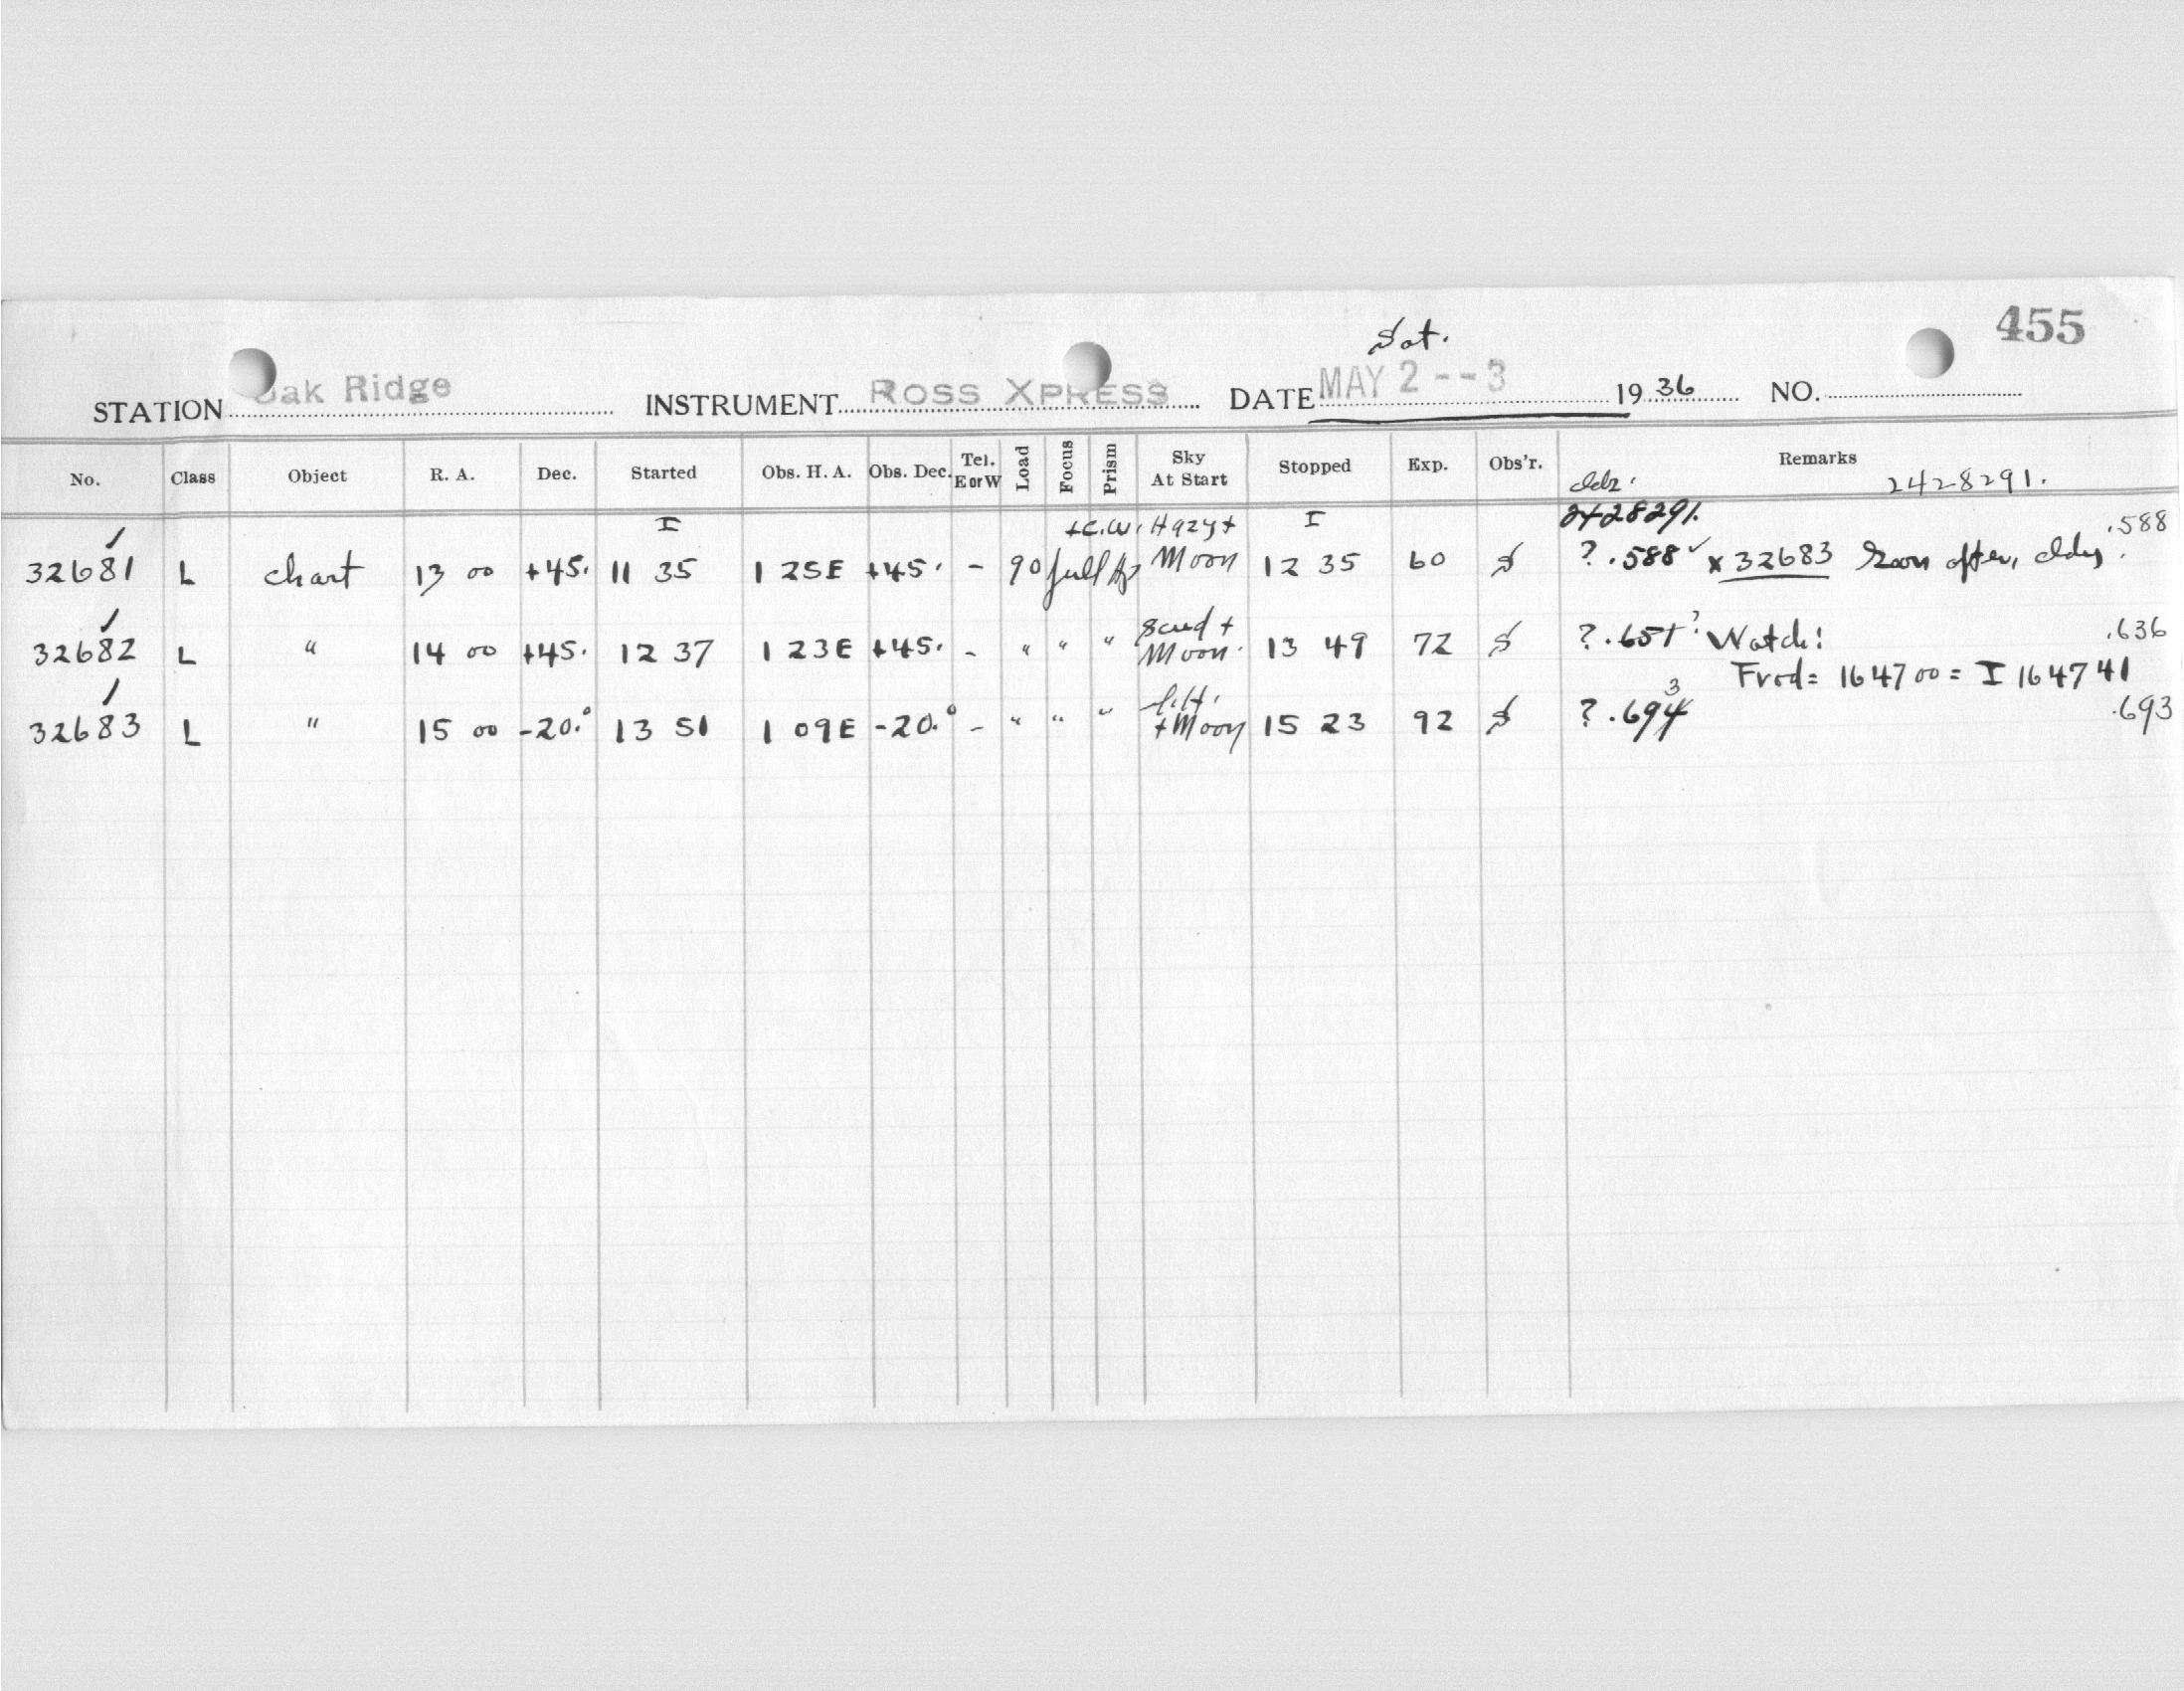 455
Sat.
STATION Oak Ridge INSTRUMENT ROSS XPRESS DATE MAY 2--3 1936 NO.
No. Class Object R. A. Dec. Started Obs. H. A. Obs. Dec. Tel. E or W Load Focus Prism Sky At Start Stopped Exp. Obs'r. Remarks
2428291.
I +C.W. Hazy + I 2428291. .588
32681 L chart 13 00 +45. 11 35 1 25E +45. - 90 full Moon 12 35 60 S ? .588 x 32683 Soon after, cldy.
32682 L " 14 00 +45. 12 37 1 23E +45. - " " " Scud + Moon. 13 49 72 S ? .651 ? Watch! .636
Frod = 16 47 00 = I 16 47 41
32683 L " 15 00 -20.° 13 51 1 09E -20.° - " " " + Moon 15 23 92 S ? .694 3 .693